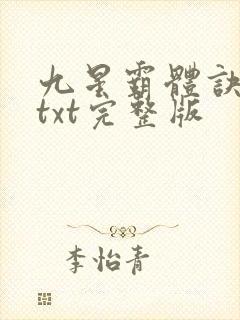 九星霸體訣
txt完整版
李怡青